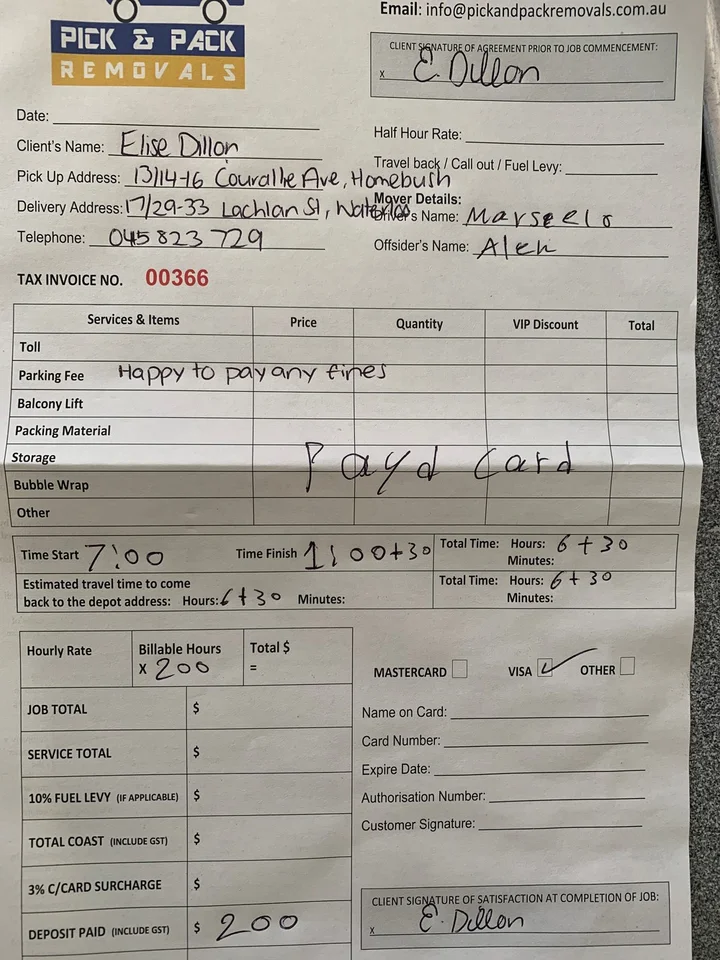 Email: info@pickandpackremovals.com.au
PICK & PACK
REMOVALS
CLIENT SIGNATURE OF AGREEMENT PRIOR TO JOB COMMENCEMENT:
x E Dillon
Date:
Client's Name: Elise Dillon
Pick Up Address: 13/14-16 Couralie Ave, Homebush
Delivery Address: 17/29-33 Lachlan St, Waterloo
Telephone: 045 823 729
Half Hour Rate:
Travel back / Call out / Fuel Levy:
Mover Details:
Driver's Name: Marseelo
Offsider's Name: Alen
TAX INVOICE NO. 00366
Services & Items Price Quantity VIP Discount Total
Toll
Parking Fee Happy to pay any fines
Balcony Lift
Packing Material
Storage Payd card
Bubble Wrap
Other
Time Start 7:00 Time Finish 1:00+30 Total Time: Hours: 6 + 30
Minutes:
Estimated travel time to come
back to the depot address: Hours: 6 + 30 Minutes:
Total Time: Hours: 6 + 30
Minutes:
Hourly Rate Billable Hours Total $
x 200 =
JOB TOTAL $
SERVICE TOTAL $
10% FUEL LEVY (IF APPLICABLE) $
TOTAL COAST (INCLUDE GST) $
3% C/CARD SURCHARGE $
DEPOSIT PAID (INCLUDE GST) $ 200
MASTERCARD VISA ✓ OTHER
Name on Card:
Card Number:
Expire Date:
Authorisation Number:
Customer Signature:
CLIENT SIGNATURE OF SATISFACTION AT COMPLETION OF JOB:
x E. Dillon